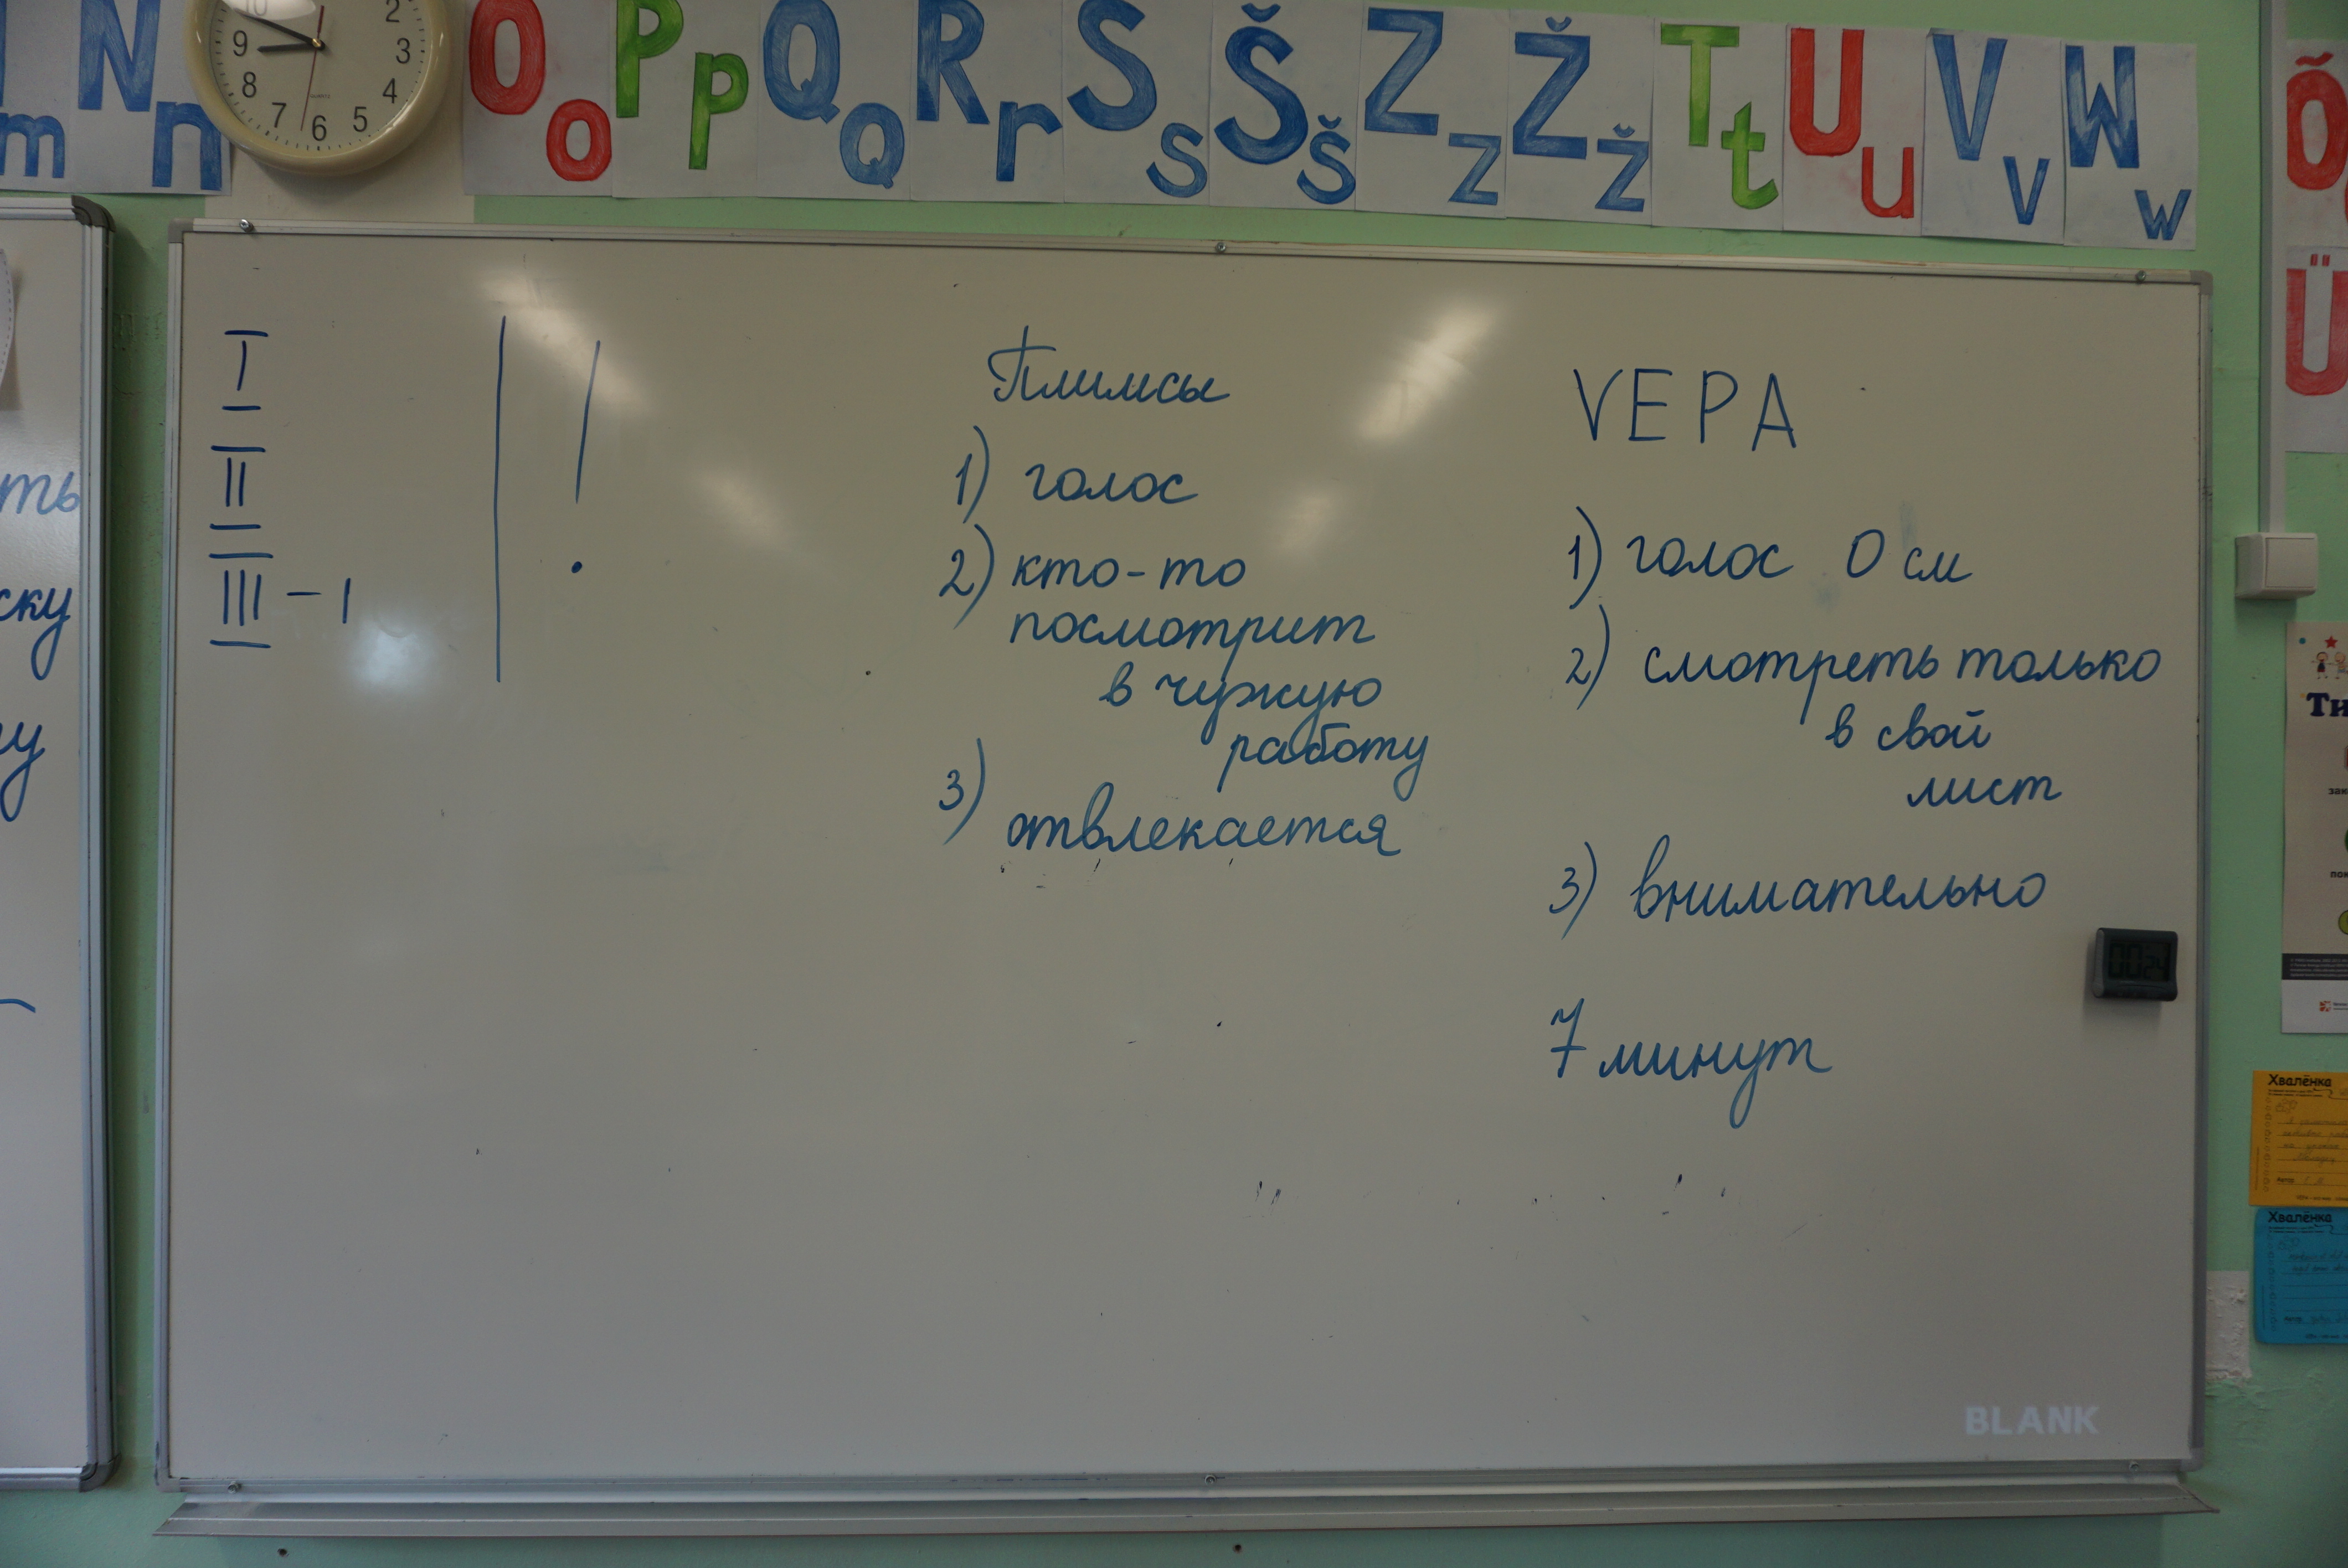 N n
m
10 2
9 3
8 4
7 6 5
O o P p Q Q R r S s Š š Z z Ž ž T t U u V v W w
Õ
Ü
ть
ску
у
I
II
III – 1
!
Плимсы
1) голос
2) кто-то
посмотрит
в чужую
работу
3)
отвлекается
VEPA
1) голос 0 см
2) смотреть только
в свой
лист
3) внимательно
7 минут
00 24
BLANK
Ти
зак
пок
Хвалёнка
Автор
Хвалёнка
Автор